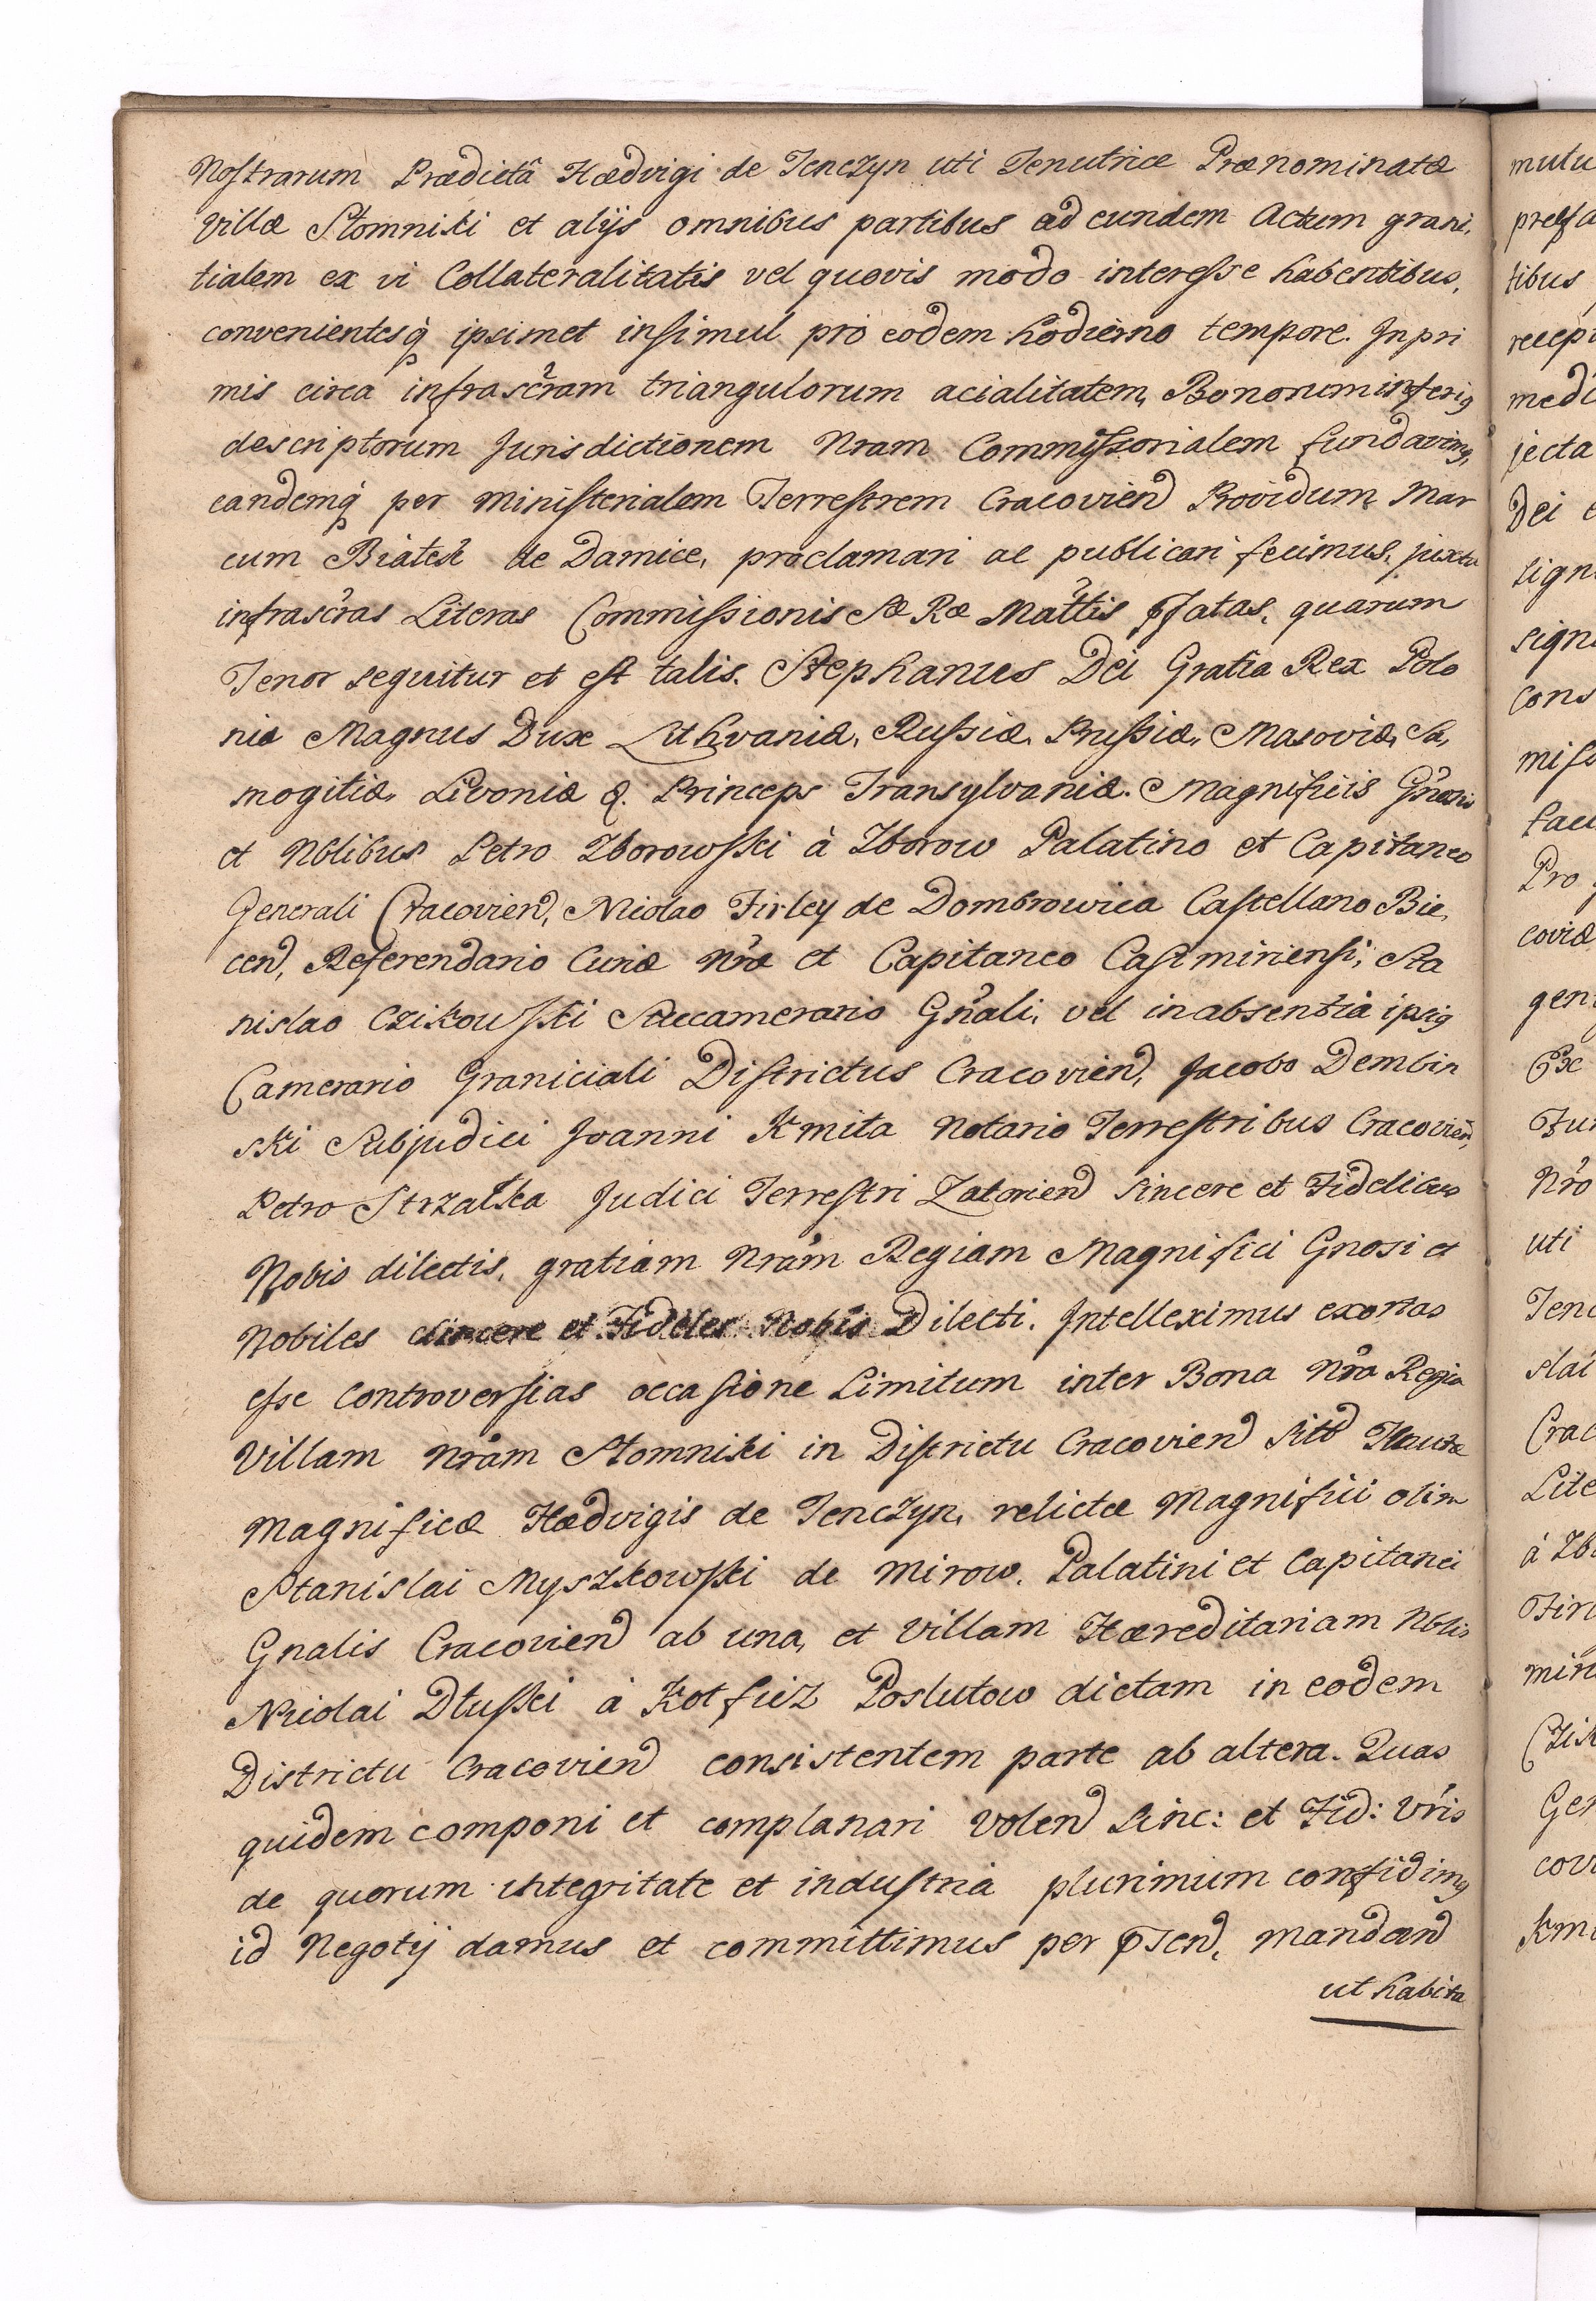 Nostrarum Prædictâ Hædvigi de Tenczyn uti Tenutricæ Prænominatæ
villæ Słomniki et alijs omnibus partibus ad eundem Actum grani,
tialem ex vi Collateralitatis vel quovis modo interesse habentibus,
convenientesq̃ ipsimet insimul pro eodem hodierno tempore. Inpri
mis circa infrascr̃am triangulorum acialitatem, Bonorum inferiq
descriptorum Jurisdictionem Nram Commissorialem fundavimq,
eandemq̃ per Ministerialem Terrestrem Cracovień Providum Mar
cum Białek de Damice, proclamari ac publicari fecimus, juxta
infrascr̃as Literas Commissionis Sæ Ræ Mattis quarum
Tenor sequitur et est talis. Stephanus Dei Gratia Rex Polo
niæ Magnus Dux Lithvaniæ, Russiæ, Prussiæ, Masoviæ, Sa,
mogitiæ, Livoniæ &. Princeps Transylvaniæ. Magnificis
et Nblibus Petro Zborowski à Zborow Palatino et Capitaneo
Generali Cracovień, Nicolao Firley de Dombrowica Castellano Bie,
ceń, Referendario Curiæ Nræ et Capitaneo Casimiriensi, Sta
nislao Czikowski Succamerario Gñali, vel in absentia ipsiq
Camerario Graniciali Districtus Cracovień, Jacobo Dembin
ski Subjudici Joanni Kmita Notario Terrestribus Cracovień,
Petro Strzałka Judici Terrestri Zatorień Sincere et Fidelibus
Nobis dilectis, gratiam Nram Regiam Magnifici Gnosi et
Nobiles Sincere et Fideles Nobis Dilecti. Intelleximus exortas
esse Controversias occasione Limitum inter Bona Nra Regia
Villam Nram Słomniki in Districtu Cracovień
Magnificæ Hædvigis de Tenczyn, relictæ Magnifici olim
Stanislai Myszkowski de Mirow, Palatini et Capitanei
Gnalis Cracovień ab una, et Villam Hæreditariam Nblis
Nicolai Dłuski à Kotficz Poslutow dictam in eodem
Districtu Cracovień consistentem parte ab altera. Quas
quidem componi et complanari Voleń Sinc: et Fid: Vris
de quorum integritate et industria plurimum confidimq
id Negotij damus et committimus per mandań
ut habita
mutu
tibus
recepi
medi
jecta
Dei
sign
sign
cons
miss
facu
Pro
coviæ
gen
Ex
Nro
uti
Tenc
slai
Crac
Lite
à Zb
Fir
Ger
Kmi